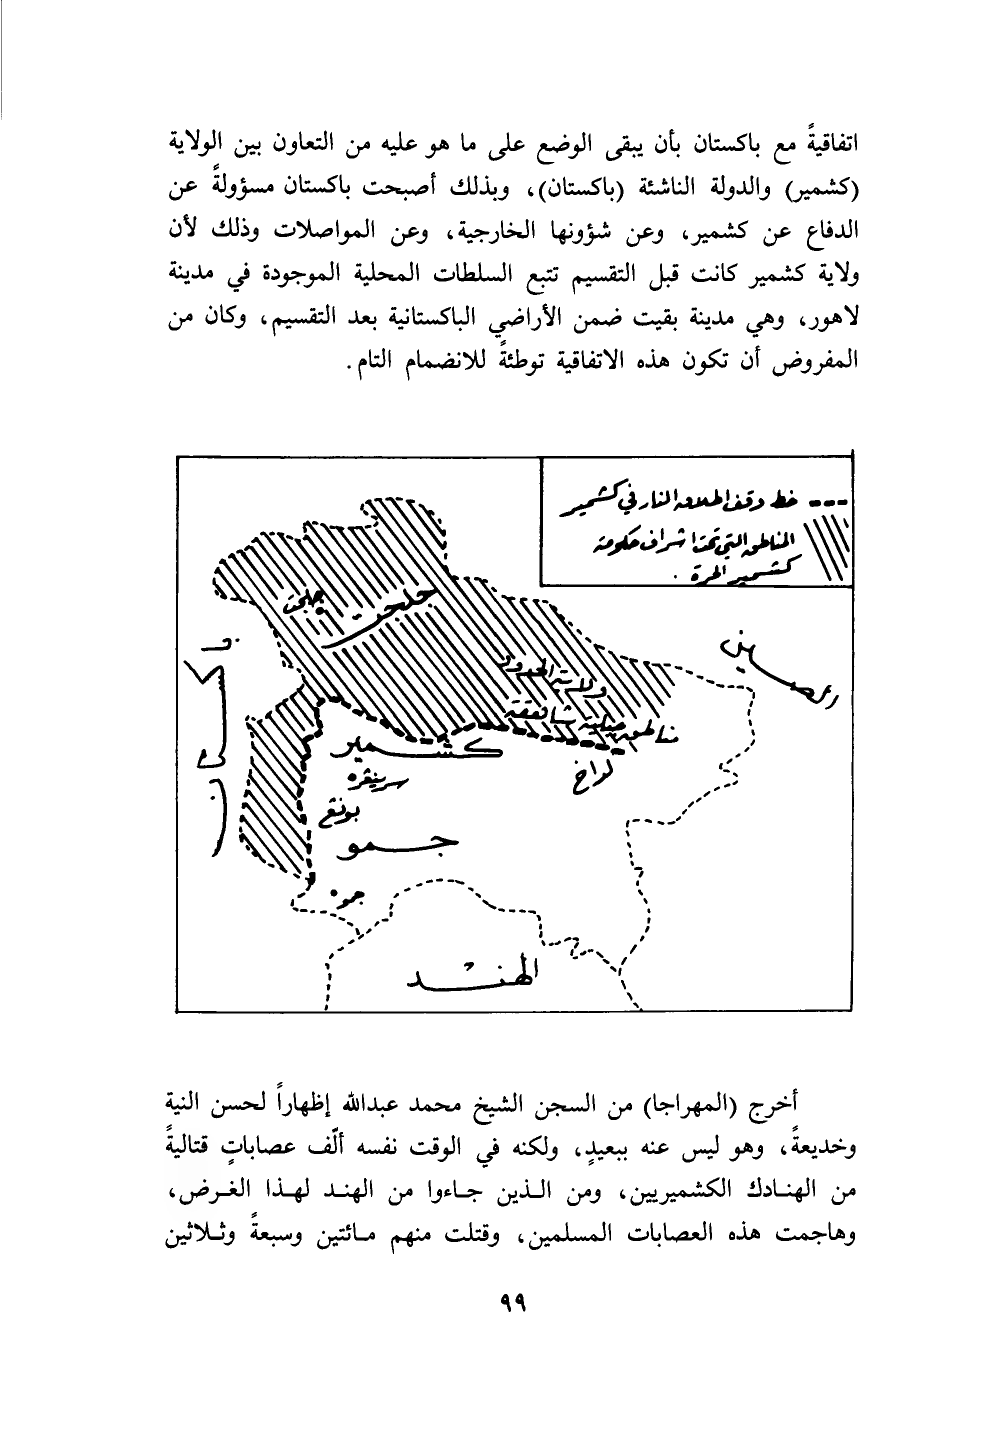 اتفاقيةً مع باكستان بأن يبقى الوضع على ما هو عليه من التعاون بين الولاية
(كشمير) والدولة الناشئة (باكستان)، وبذلك أصبحت باكستان مسؤولةً عن
الدفاع عن كشمير، وعن شؤونها الخارجية، وعن المواصلات وذلك لأن
ولاية كشمير كانت قبل التقسيم تتبع السلطات المحلية الموجودة في مدينة
لاهور، وهي مدينة بقيت ضمن الأراضي الباكستانية بعد التقسيم، وكان من
المفروض أن تكون هذه الاتفاقية توطئةً للانضمام التام.
خط وقف اطلاق النار في كشمير
المناطق التي تحت اشراف حكومة
كشمير الحرة.
جلجت
جلجت
باكستان
الصين
ولاية الحدود
مناطق جبلية شاهقة
كشمير
لداخ
سرينغر
بونغ
جمو
جمو
الهند
أخرج (المهراجا) من السجن الشيخ محمد عبدالله إظهاراً لحسن النية
وخديعةً، وهو ليس عنه ببعيدٍ، ولكنه في الوقت نفسه ألّف عصاباتٍ قتاليةً
من الهنادك الكشميريين، ومن الذين جاءوا من الهند لهذا الغرض،
وهاجمت هذه العصابات المسلمين، وقتلت منهم مائتين وسبعةً وثلاثين
٩٩